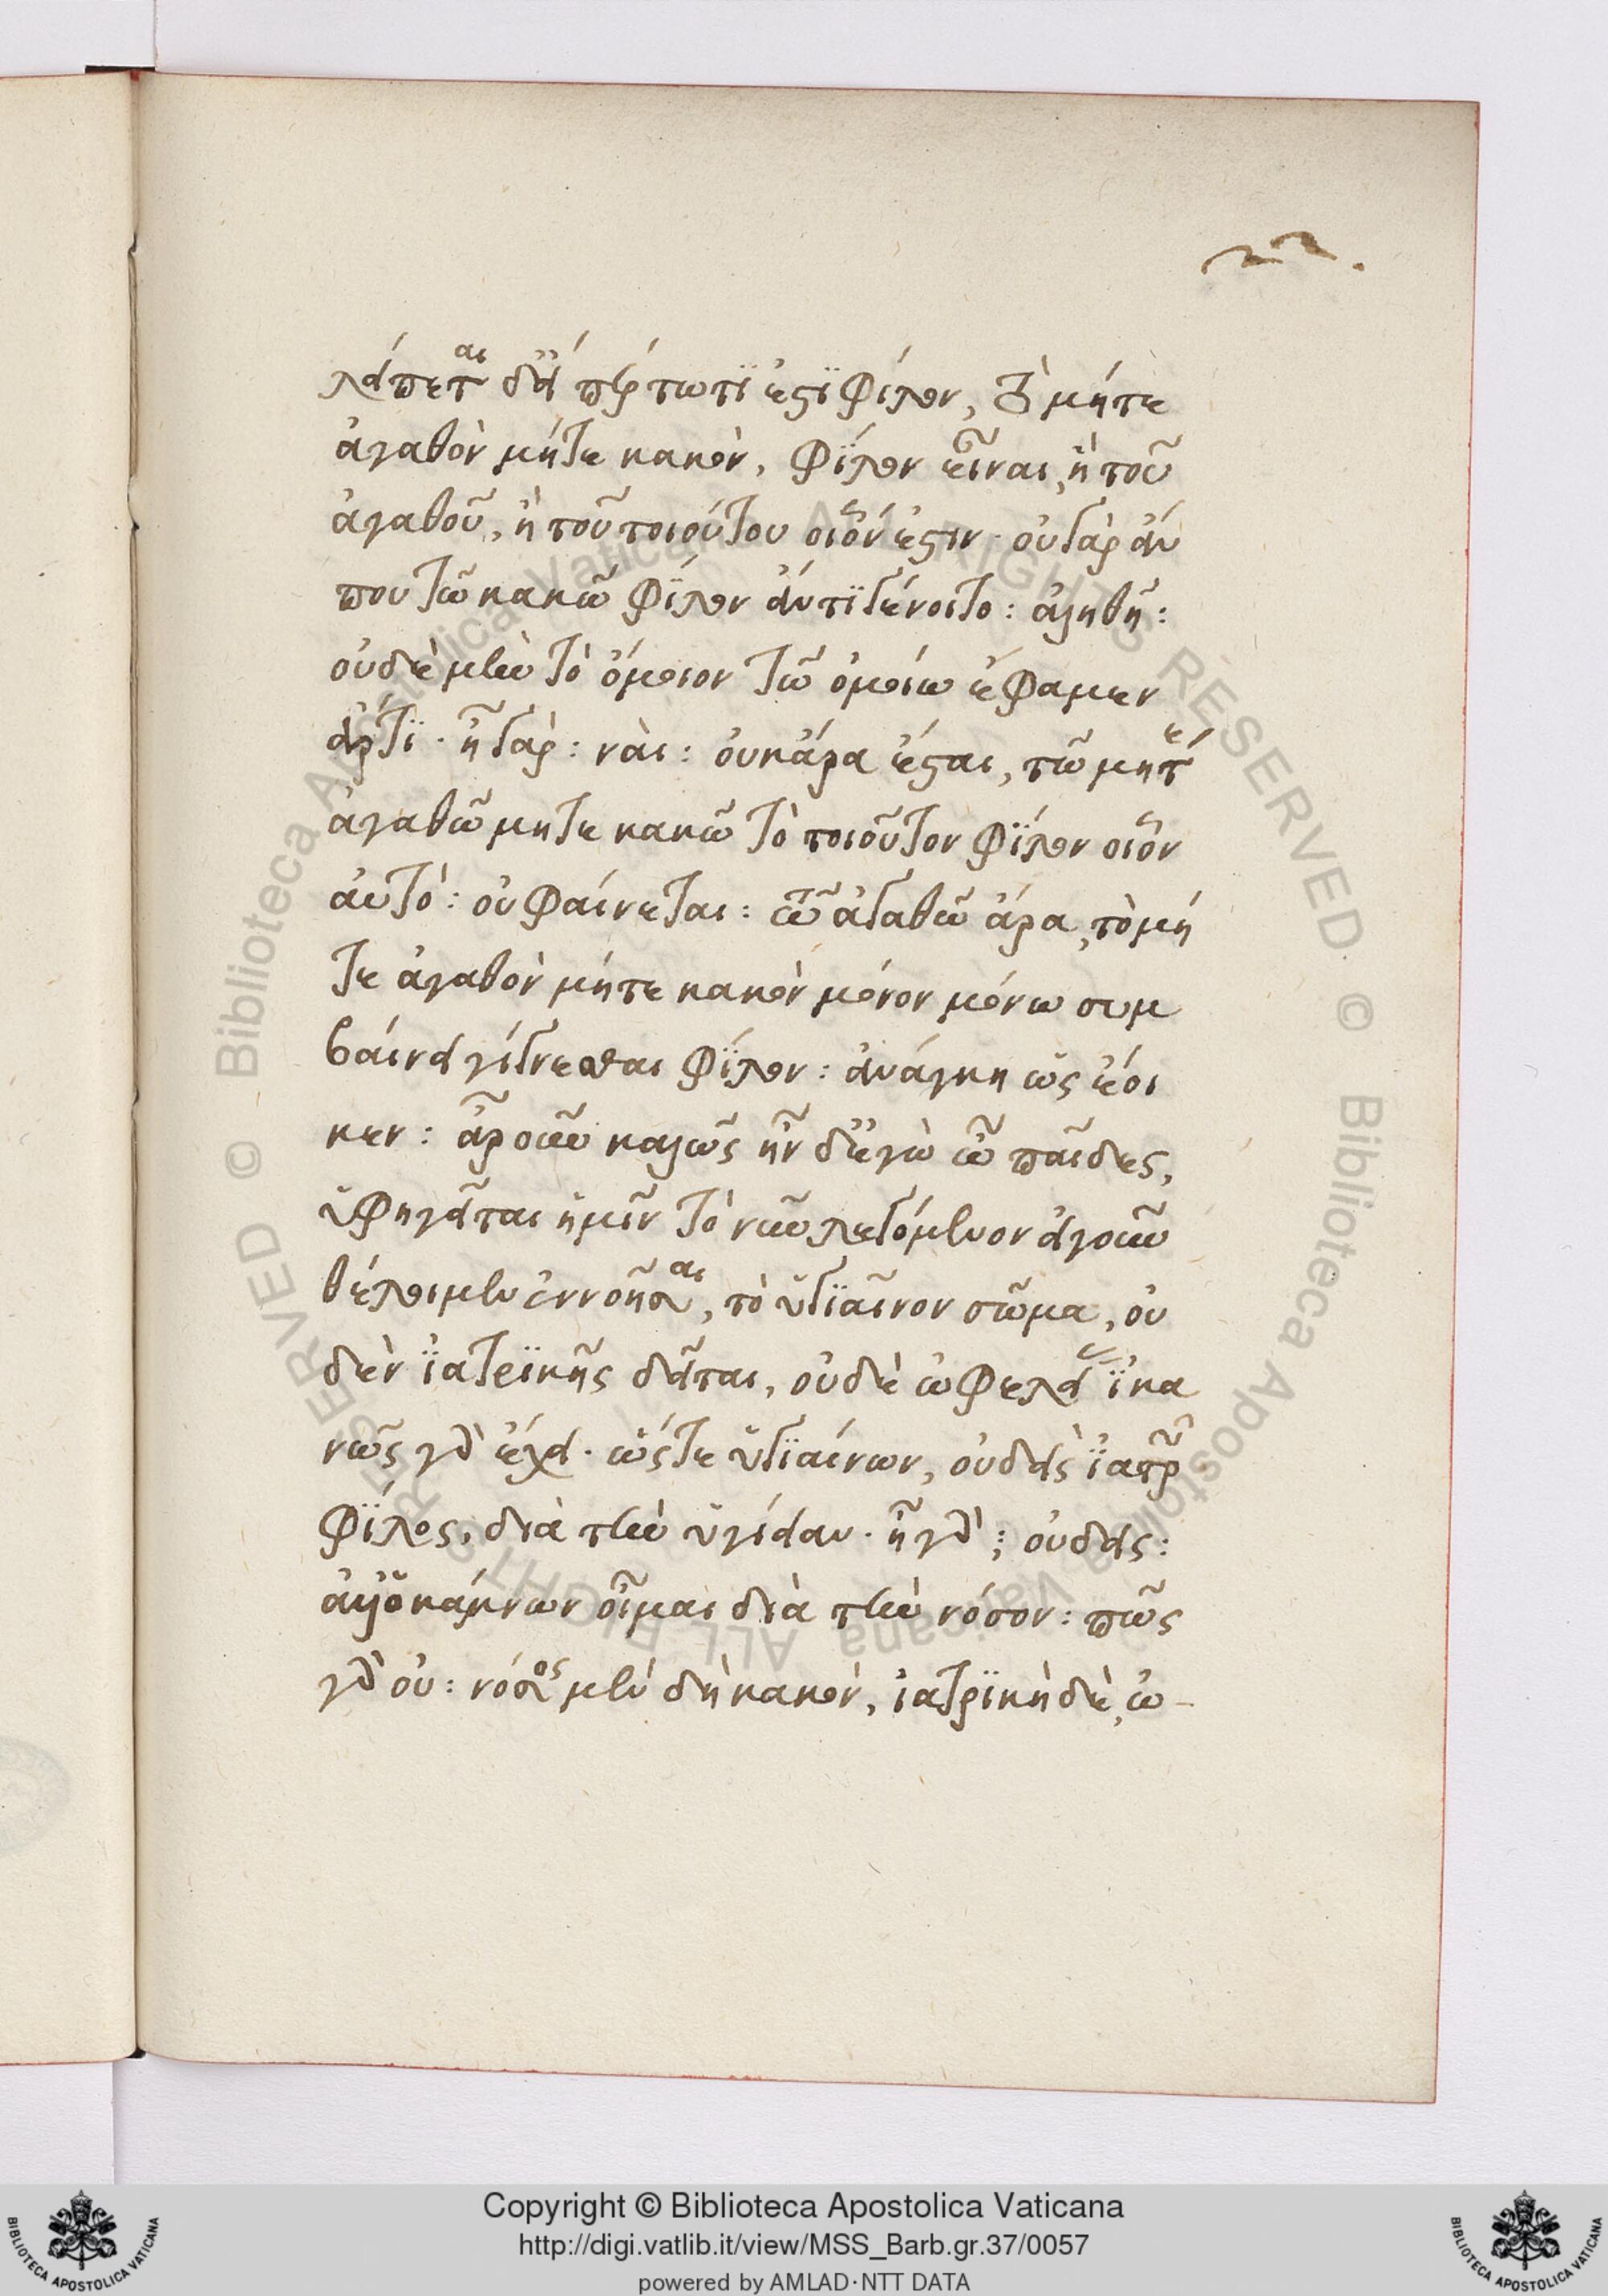 22.
λείπεται δὴ εἴπερ τωτϊ ἐστϊ φίλον, τὸ μήτε
ἀγαθὸν μήτε κακὸν, φίλον εἶναι, ἢ τοῦ
ἀγαθοῦ, ἢ τοῦ τοιούτου οἷόν ἐστιν · οὐ γὰρ ἄν
που τῶ κακῶ φίλον ἄν τϊ γένοιτο : ἀληθῆ :
οὐδὲ μὴν τὸ ὅμοιον τῶ ὁμοίω ἔφαμεν
ἄρτϊ · ἦ γάρ : ναι : οὐκ ἄρα ἔσται, τῶ μήτε
ἀγαθῶ μητε κακῶ τὸ τοιοῦτον φίλον οἷον
αὐτό : οὐ φαίνεται : τῶ ἀγαθῶ ἄρα, τὸ μή
τε ἀγαθὸν μήτε κακὸν μόνον μόνω συμ
βαίνει γίγνεσθαι φίλον : ἀνάγκη ὡς ἔοι
κεν : ἆρ οὖν καλῶς ἦν δ' ἐγὼ ὦ παῖδες,
ὑφηγεῖται ἡμῖν τὸ νῦν λεγόμενον εἰ γοῦν
θέλοιμεν ἐννοῆσαι, τὸ ὑγϊαῖνον σῶμα, οὐ
δὲν ϊατρϊκῆς δεῖται, οὐδὲ ὠφελείας ϊκα
νῶς γὰρ ἔχει · ὥστε ὑγϊαίνων, οὐδεὶς ϊατρῶ
φίλος, διὰ τὴν ὑγίειαν · ἦ γὰρ ; οὐδείς :
ἀλλ' ὁ κάμνων οἶμαι διὰ τὴν νόσον : πῶς
γὰρ οὐ : νόσος μὲν δὴ κακὸν, ἰατρϊκὴ δὲ, ὠ-
Copyright © Biblioteca Apostolica Vaticana
http://digi.vatlib.it/view/MSS_Barb.gr.37/0057
powered by AMLAD·NTT DATA
BIBLIOTECA APOSTOLICA VATICANA
BIBLIOTECA APOSTOLICA VATICANA
© Biblioteca Apostolica Vaticana ALL RIGHTS RESERVED.
© Biblioteca Apostolica Vaticana ALL RIGHTS RESERVED